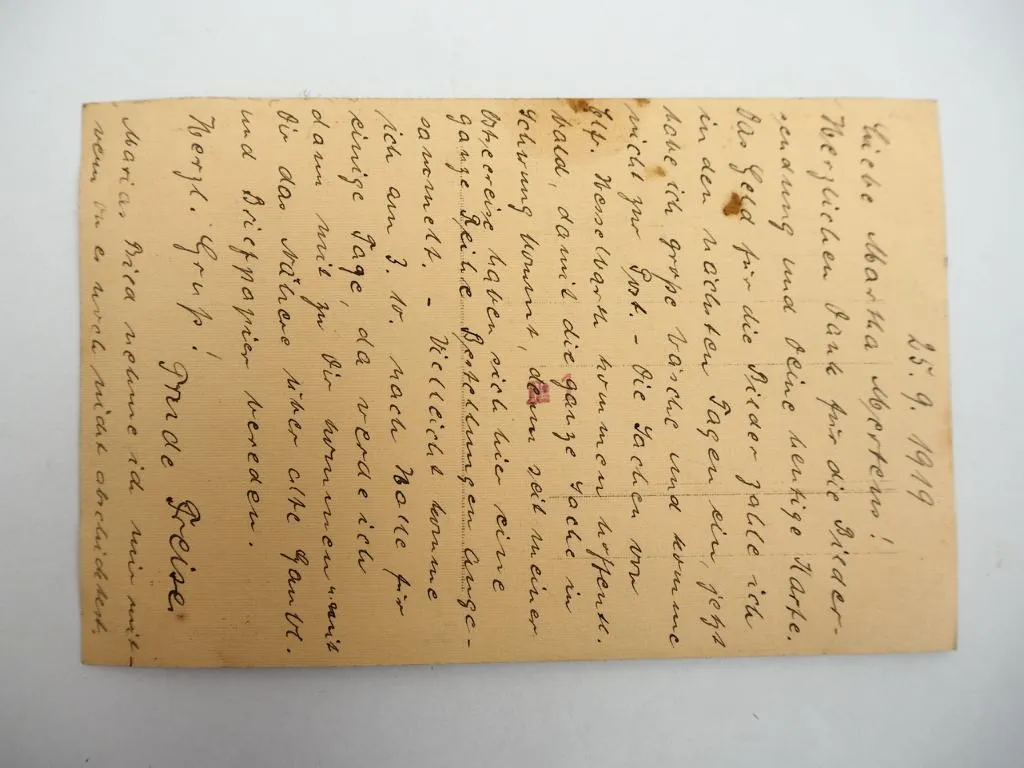 25. 9. 1919
Liebe Martha Mertens!
Herzlichen Dank für die Bilder-
sendung und Deine heutige Karte.
Das Geld für die Bilder zahle ich
in den nächsten Tagen ein, jetzt
habe ich große Wäsche und komme
nicht zur Post. - Die Sachen von
Hesselbarth kommen hoffentl.
bald, damit die ganze Sache in
Schwung kommt, denn seit meiner
haben sich hier eine
ganze Reihe Bestellungen ange-
sammelt. - Vielleicht komme
ich am 3. 10. nach Halle für
einige Tage, da werde ich
dann mit zu Dir kommen und mit
Dir das Nähere über alte
und Briefpapier bereden.
Herzl. Gruß!
Trude Freise.
Marias Bild nehme ich mir mit,
wenn Du es noch nicht abschickst.